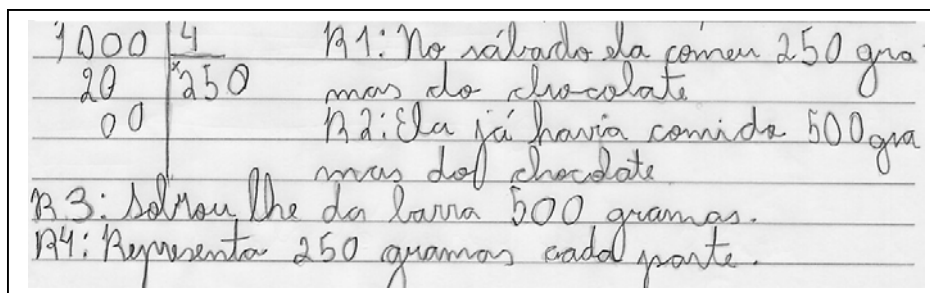 1000 4 R1: No sábado ela comeu 250 gra
20 250 mas do chocolate
00 R2: Ela já havia comido 500 gra
mas do chocolate
R3: Sobrou lhe da barra 500 gramas.
R4: Representa 250 gramas cada parte.